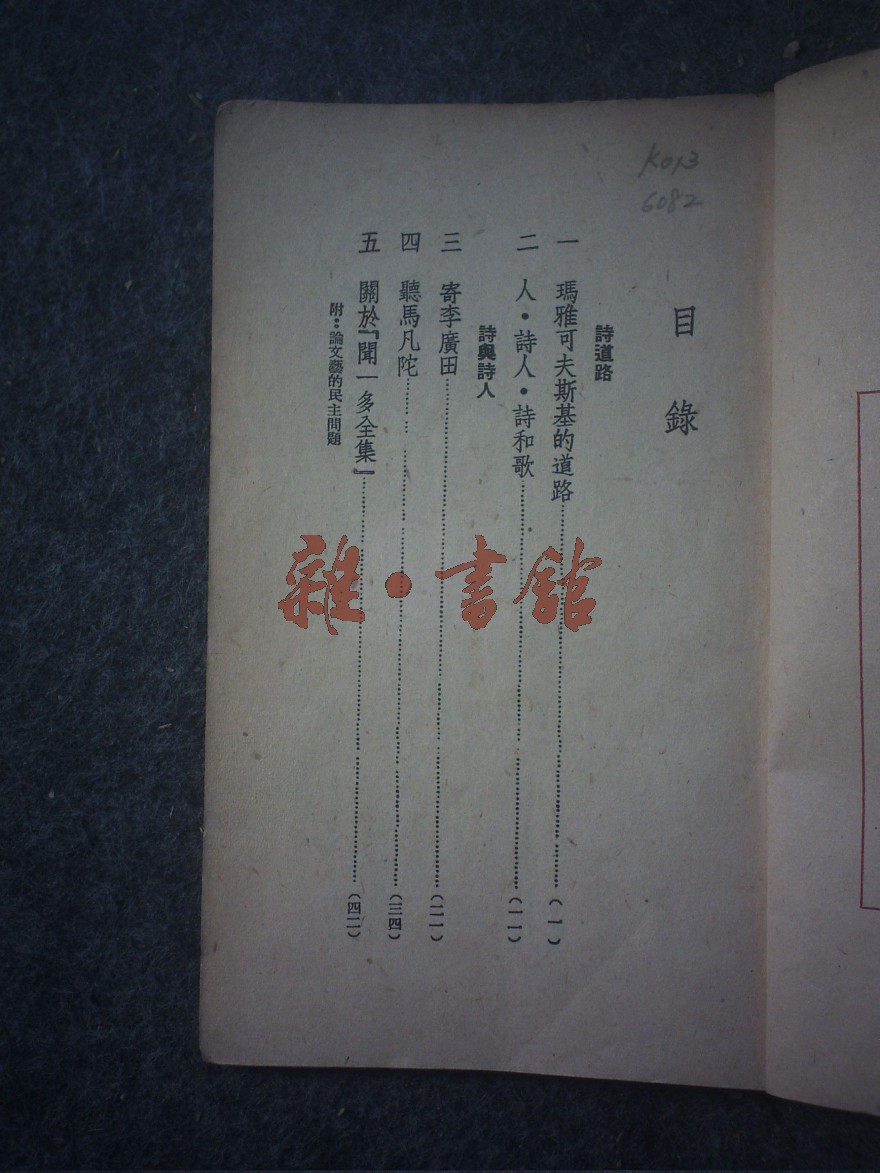 K013
6082
目錄
詩道路
一 瑪雅可夫斯基的道路……(一)
二 人·詩人·詩和歌……(一一)
詩與詩人
三 寄李廣田……(二一)
四 聽馬凡陀……(三四)
五 關於『聞一多全集』……(四二)
附：論文藝的民主問題
雜·書館